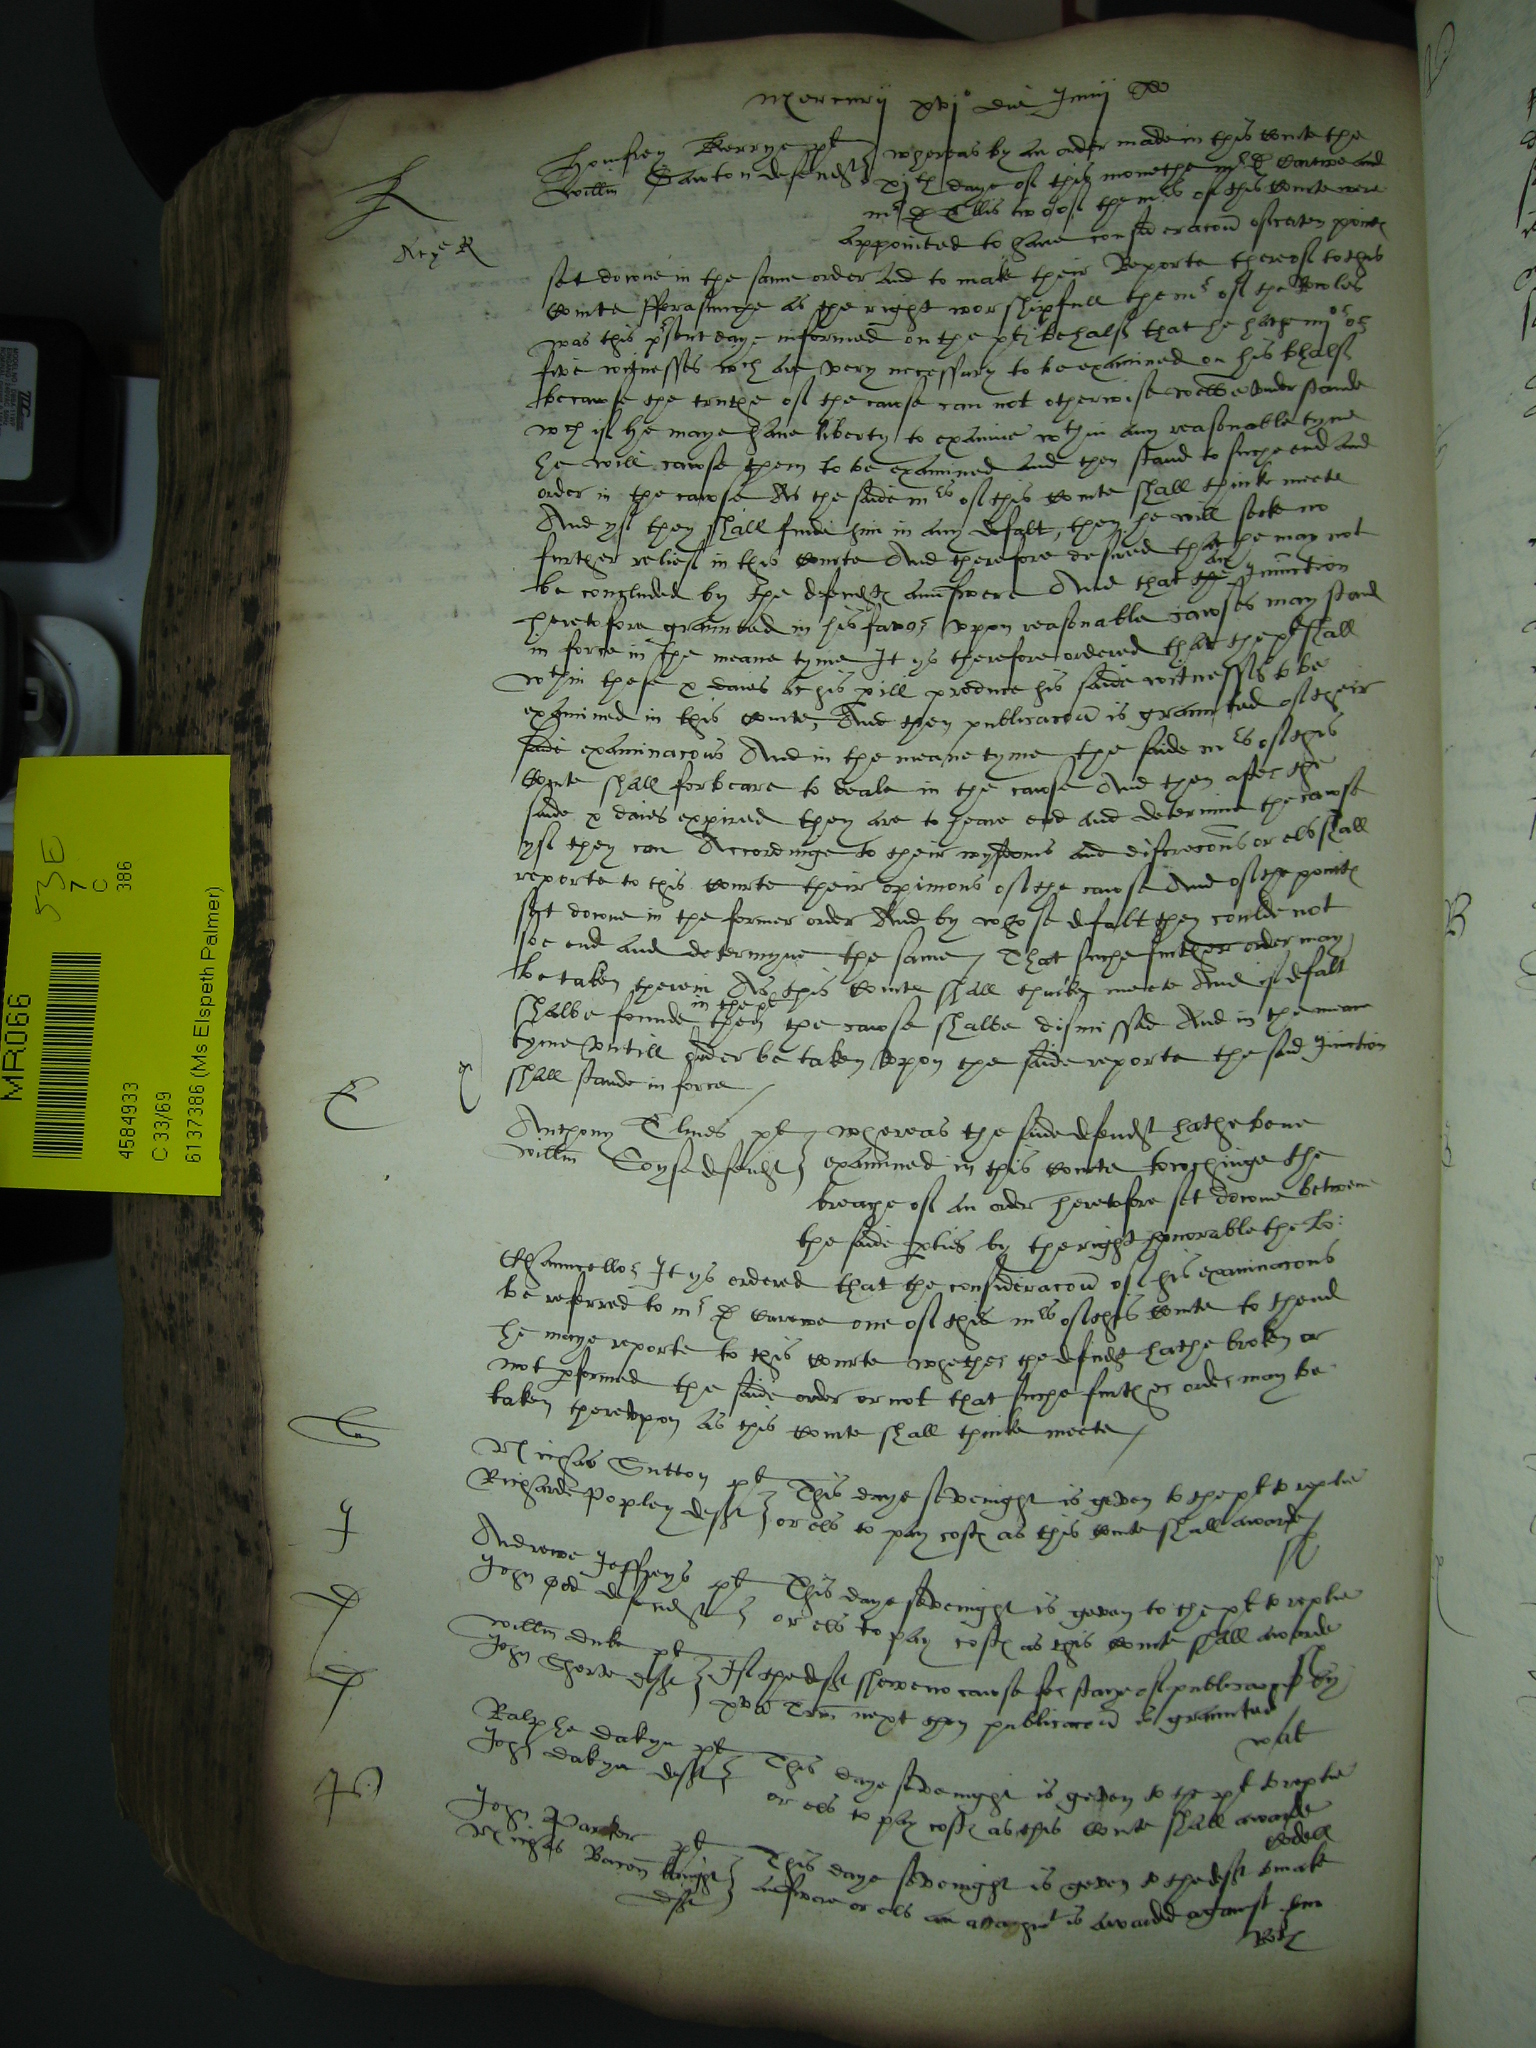 Mercurij xvj° die Junij
Homfrey Kerrye plt
Willm Sawton defendt
whereas by an order made in this courte the
xjth daye of this monethe mr D Carewe and
mr D Ellis two of the mrs of this Courte were
appointed to have consideracon of certen pointes
K
set downe in the same order and to make their Reporte thereof to this
Courte Fforasmuche as the right worshipfull the mr of the Rowles
was this psent daye informed on the pltes behalf that he hathe iiijor or
five witnesses wch are very necessary to be examined on his bhalf
because the truthe of the cause can not otherwise welbe understande
wch if he maye have liberty to examine wthin any reasonable tyme
he will cawse them to be examined and then stand to suche end and
order in the cawse As the saide mrs of this Courte shall thinke meete
And yf they shall finde him in any defalt, then he will seeke no
further relief in this Courte And therefore desired that he may not
be concluded by the defendtes aunswere And that the an Iniunction
heretofore graunted in his favor upon reasonable cawses may stand
in force in the meane tyme It ys therefore ordered that the plt shall
wthin these x daies at his pill produce his saide witnesses to be
examined in this Courte, And then publicacon is graunted of their
saide examinacons And in the meane tyme the saide mrs of this
Courte shall forbeare to deale in the cawse And then after the
saide x daies expired they are to heare end and determine the cawse
yf they can Accordinge to their wysdoms and discrecons or els shall
reporte to this Courte their opinions of the cawse And of the pointes
set downe in the former order And by whose defalt they coulde not
soe end and determyne the same, That suche further order may
be taken therein As this Courte shall thinke meete And if defalt
shalbe founde in the plt then the cawse shalbe dismissed And in the meane
tyme untill order be taken upon the saide reporte the said Iniunction
shall stande in force
E
Anthony Elmes plt
Willm Soyse defendt
whereas the saide defendt hathe bene
examined in this Courte towchinge the
breache of an order heretofore set downe betwene
the saide pties by the right honorable the Lo:
Chauncellor It ys ordered that the consideracon of his examinacons
be referred to mr D Carewe one of the mrs of this Courte to thend
he maye reporte to this Courte whether the defendt hathe broken or
not pformed the saide order or not that suche further order may be
taken thereupon as this Courte shall thinke meete
Nichas Sutton plt
Richarde Popley deft
This daye sevenight is geven to the plt to replie
or els to pay costes as this Courte shall awarde
J
Andrewe Jeffreys plt
John Pod defendt
This daye sevenight is geven to the plt to replie
or els to pay costes as this Courte shall awarde
Willm Duke plt
John Shorte deft
If the deft shewe no cawse for staye of publicacon by
xva Trin next then publicacon is graunted
Ralphe Dakyn plt
John Dakyn deft
This daye sevenight is geven to the plt to replie
or els to pay costes as this Courte shall awarde
John Parker plt
Nichas Bacon knight
deft
This daye sevenight is geven to the deft to make
answere or els an attachmt is awarded against him
MR066
4584933
C 33/69
6137386 (Ms Elspeth Palmer)
53 E
7
C
386